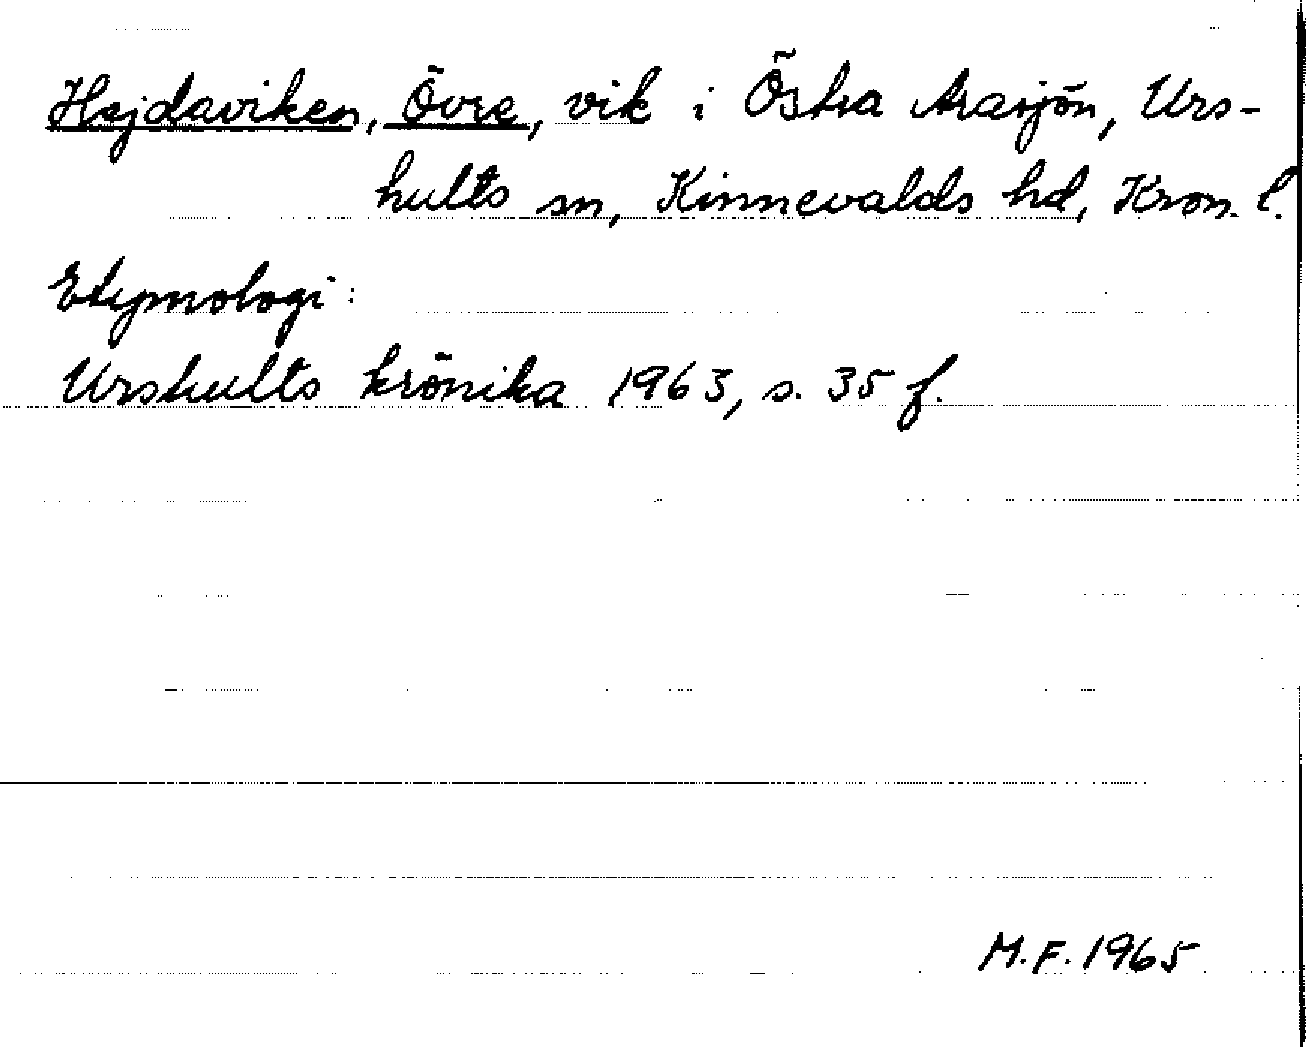 Hejdaviken, Övre, vik i Östra Arasjön, Urs-
hults sn, Kinnevalds hd, Kron. l.
Etymologi:
Urshults krönika 1963, s. 35 f.
M.F. 1965